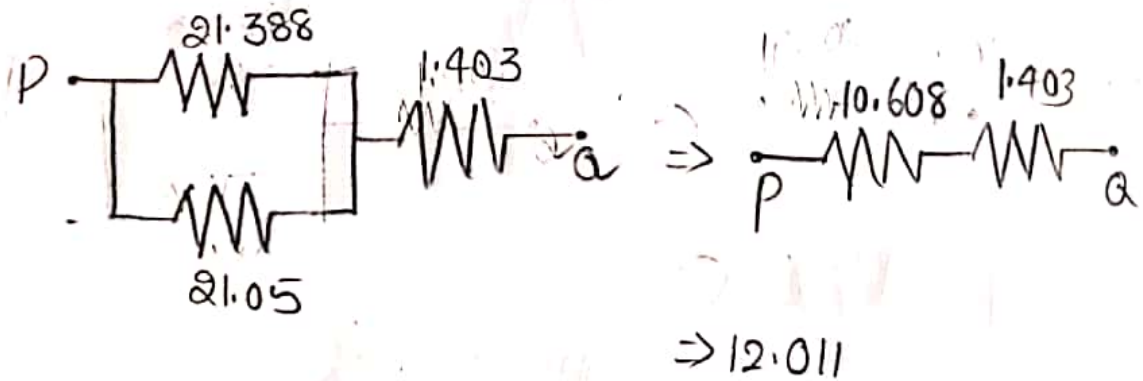 21.388
P
1.403
Q
21.05
⇒
10.608
1.403
P
Q
⇒ 12.011